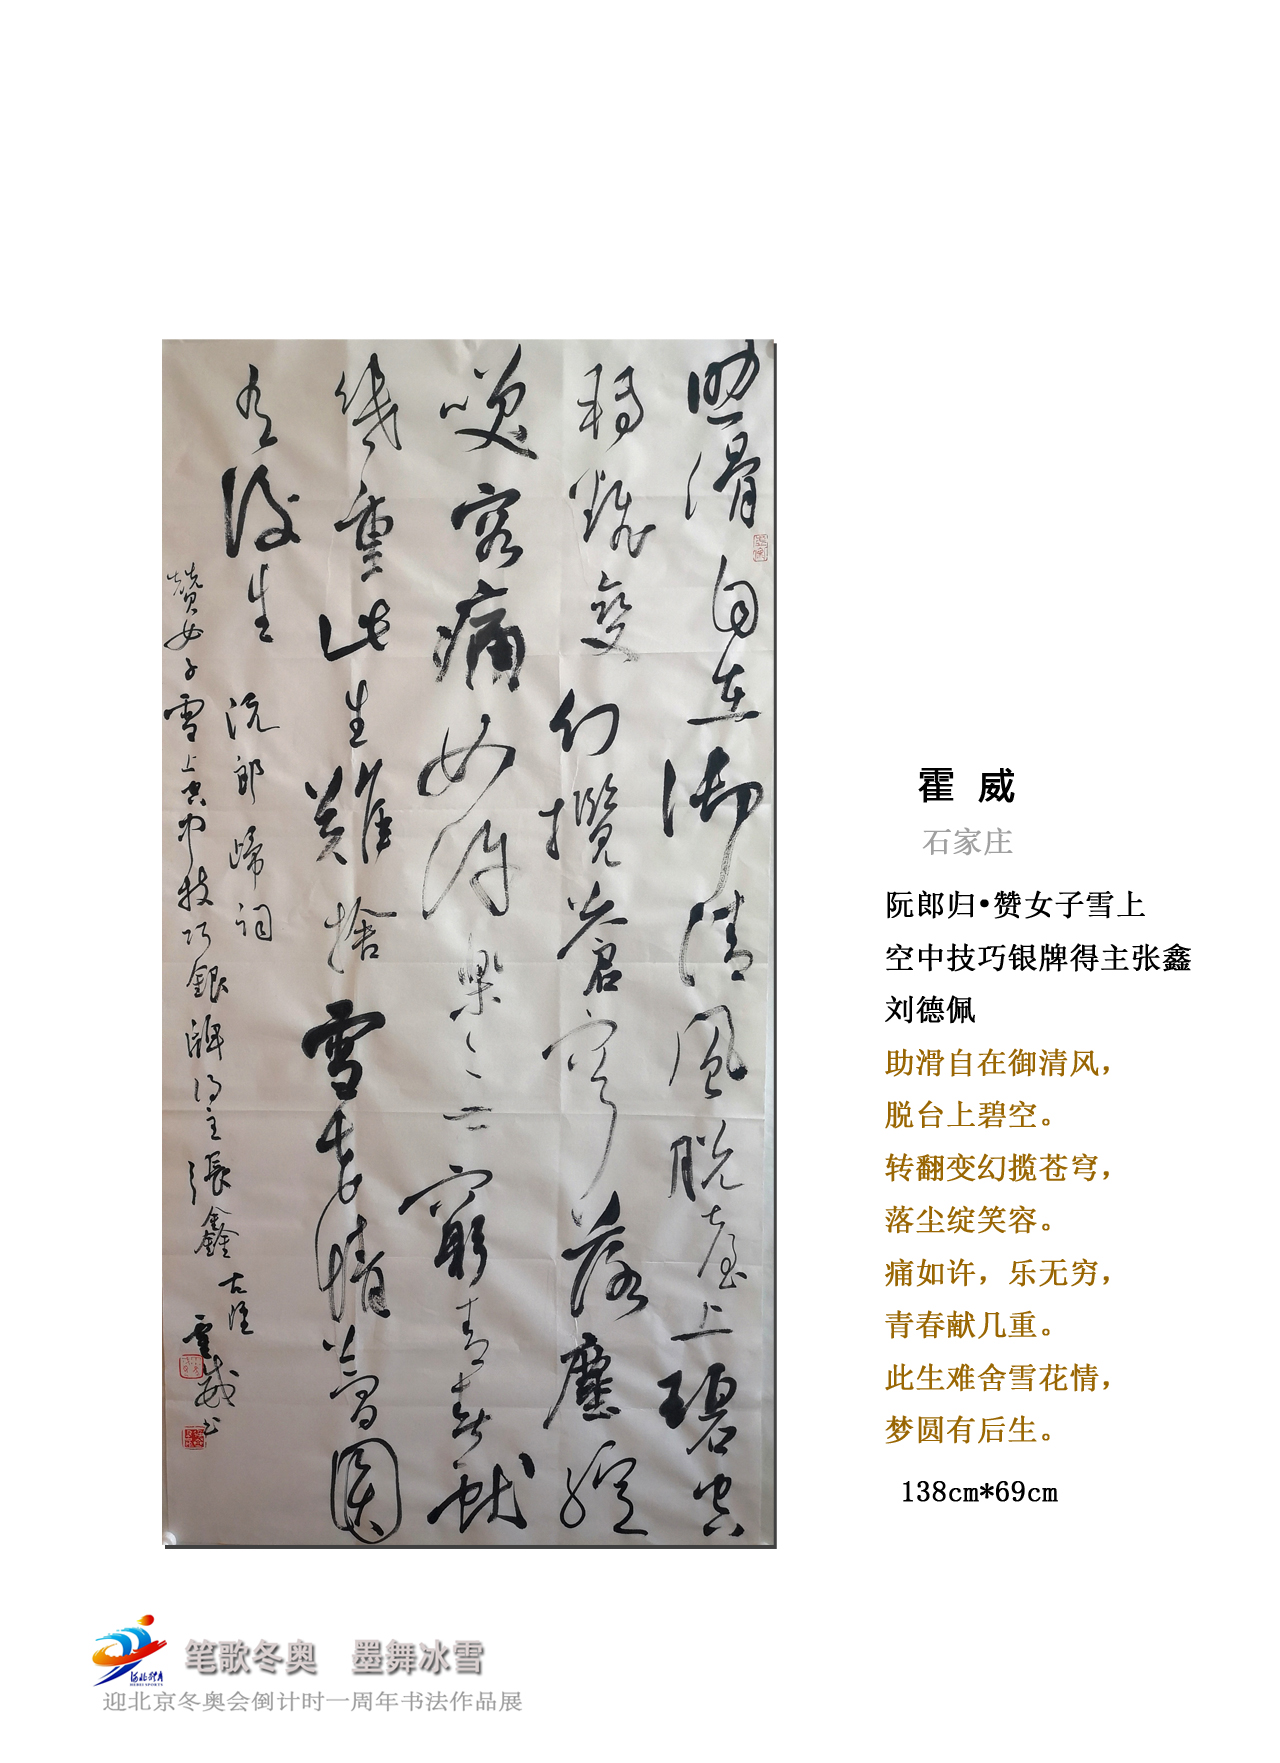 助滑自在御清风脱台上碧空
转翻变幻揽苍穹落尘绽
笑容痛如许乐乐无穷青春献
几重此生难舍雪花情梦圆
有后生 阮郎归词
赞女子雪上空中技巧银牌得主张鑫 古陘
霍威书
霍 威
石家庄
阮郎归•赞女子雪上
空中技巧银牌得主张鑫
刘德佩
助滑自在御清风，
脱台上碧空。
转翻变幻揽苍穹，
落尘绽笑容。
痛如许，乐无穷，
青春献几重。
此生难舍雪花情，
梦圆有后生。
138cm*69cm
笔歌冬奥 墨舞冰雪
河北体育
HEBEI SPORTS
迎北京冬奥会倒计时一周年书法作品展